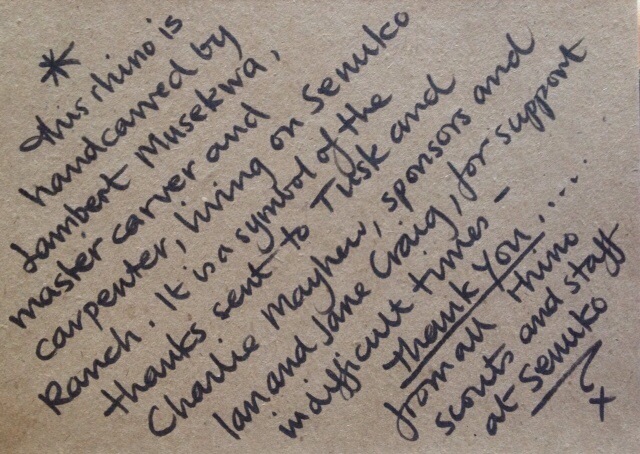 * this rhino is
handcarved by
Lambert Musekwa,
master carver and
carpenter, living on Senuko
Ranch. It is a symbol of the
thanks sent to Tusk and
Charlie Mayhew, sponsors and
Ian and Jane Craig, for support
in difficult times -
Thank you.....
from all rhino
scouts and staff
at Senuko
x